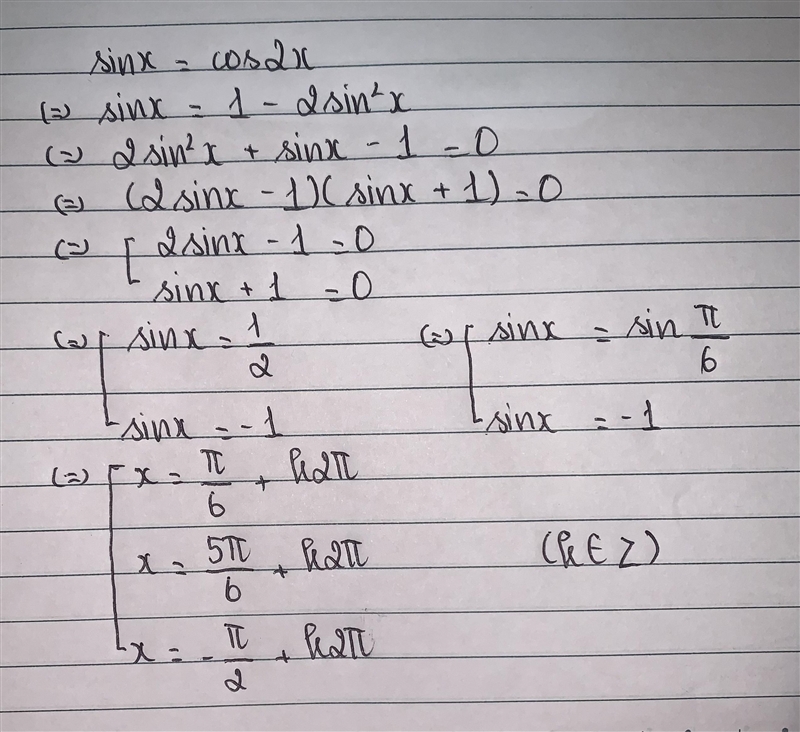 sinx = cos2x
(=) sinx = 1 - 2sin²x
(=) 2sin²x + sinx - 1 = 0
(=) (2sinx - 1)(sinx + 1) = 0
(=) [ 2sinx - 1 = 0
sinx + 1 = 0
(=) [ sinx = 1/2 (=) [ sinx = sin π/6
sinx = -1 sinx = -1
(=) [ x = π/6 + k2π
x = 5π/6 + k2π (k ∈ Z)
x = -π/2 + k2π